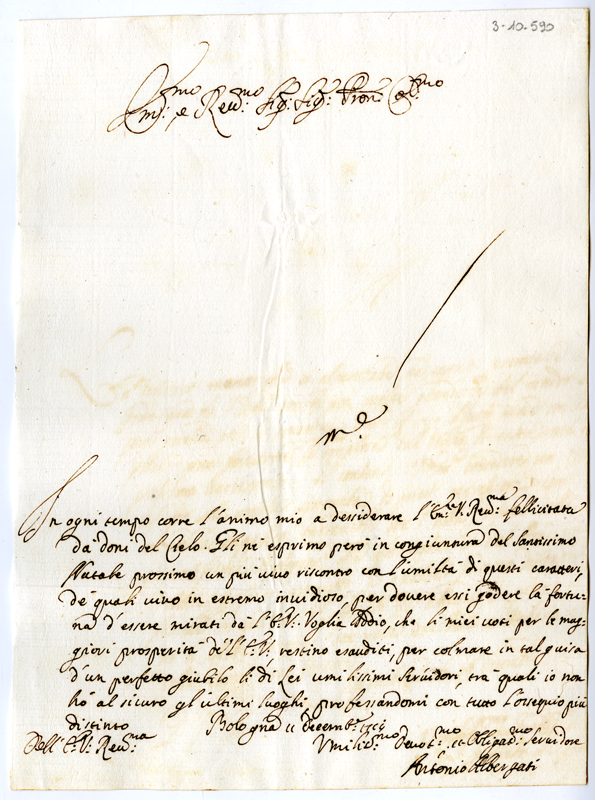 3-10-590
Em.mo e Rev.mo Sig. Sig. Pron. Col.mo
In ogni tempo corre l'animo mio a dessiderare l'Em.za V. Rev.ma fellicitata
dà doni del Cielo. Gli nè esprimo però in congiuntura del Santissimo
Natale prossimo un più vivo riscontro con l'umiltà di questi caratteri,
dè quali vivo in estremo invidioso, per dovere essi godere la fortu=
na d'essere mirati dà l'E. V. Voglia Iddio, che li miei voti per le mag=
giori prosperità de l'E. V. restino esauditi, per colmare in tal guisa
d'un perfetto giubilo li di Lei umilissimi servidori, trà quali io non
hò al sicuro gl'ultimi luoghi, professandomi con tutto l'ossequio più
distinto Bologna 11 Decemb.
Dell'E. V. Rev.ma Umilis.mo Devot.mo et Obligad.mo Servidore
Antonio Albergati